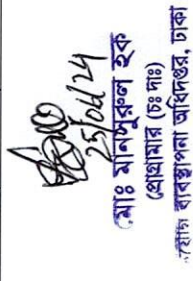 25/04/24
মোঃ মানসুরুল হক
প্রোগ্রামার (চঃ দাঃ)
ব্যবস্থাপনা অধিদপ্তর, ঢাকা